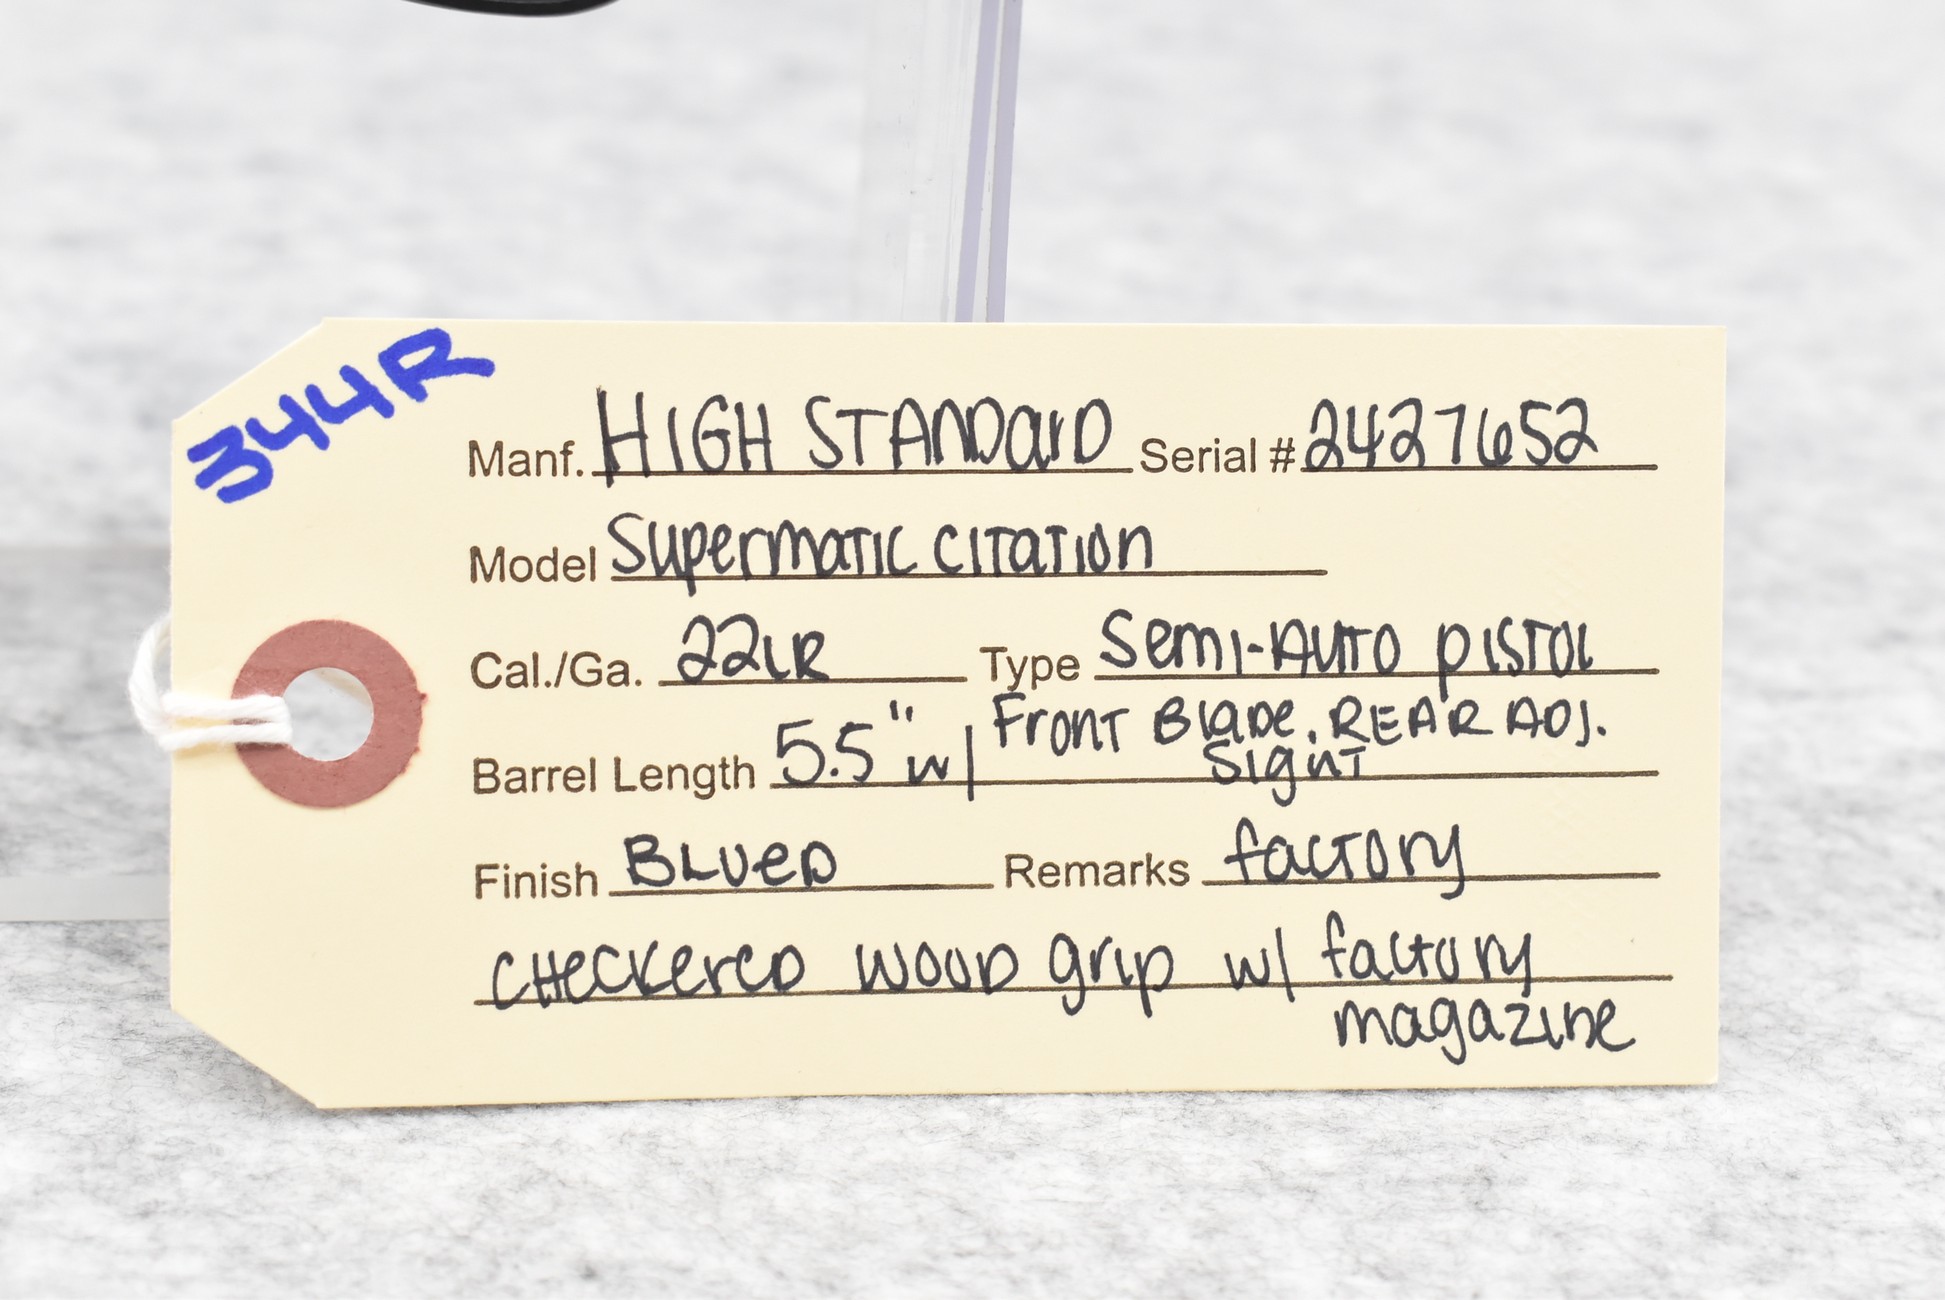 344R
Manf. HIGH STANDARD Serial # 2427652
Model Supermatic Citation
Cal./Ga. 22LR Type Semi-Auto Pistol
Barrel Length 5.5" w/ Front Blade, REAR ADJ.
Sight
Finish BLUED Remarks factory
checkered wood grip w/ factory
magazine